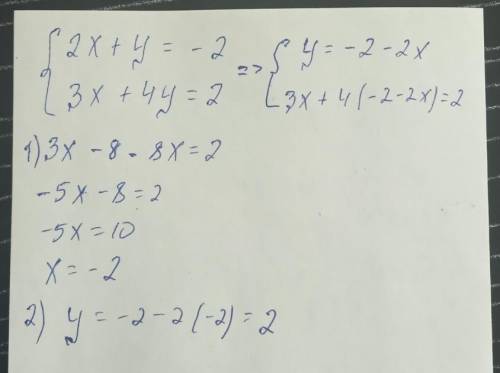 { 2x + y = -2 => { y = -2 - 2x
3x + 4y = 2 3x + 4(-2-2x) = 2
1) 3x - 8 - 8x = 2
-5x - 8 = 2
-5x = 10
x = -2
2) y = -2 - 2(-2) = 2